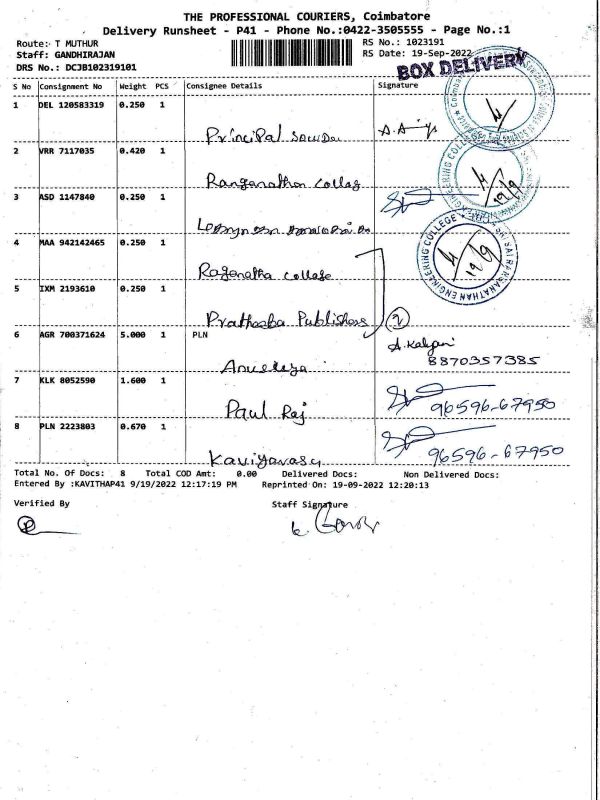 THE PROFESSIONAL COURIERS, Coimbatore
Delivery Runsheet - P41 - Phone No.:0422-3505555 - Page No.:1
Route: T MUTHUR
RS No.: 1023191
Staff: GANDHIRAJAN
RS Date: 19-Sep-2022
DRS No.: DCJB102319101
BOX DELIVERY
S No Consignment No Weight PCS Consignee Details Signature
1 DEL 120583319 0.250 1
Principal
2 VRR 7117035 0.420 1
Ranganathan Collag
3 ASD 1147840 0.250 1
4 MAA 942142465 0.250 1
Raganatha College
5 IXM 2193610 0.250 1
Pratheeba Publishers 2
6 AGR 700371624 5.000 1 PLN
A. Kalyani
8870357385
7 KLK 8052590 1.600 1
Paul Raj 96596-67950
8 PLN 2223803 0.670 1
Kaviyarasu 96596-67950
Total No. Of Docs: 8 Total COD Amt: 0.00 Delivered Docs: Non Delivered Docs:
Entered By :KAVITHAP41 9/19/2022 12:17:19 PM Reprinted On: 19-09-2022 12:20:13
Verified By Staff Signature
SRI RANGANATHAN ENGINEERING COLLEGE
19/9
19/9